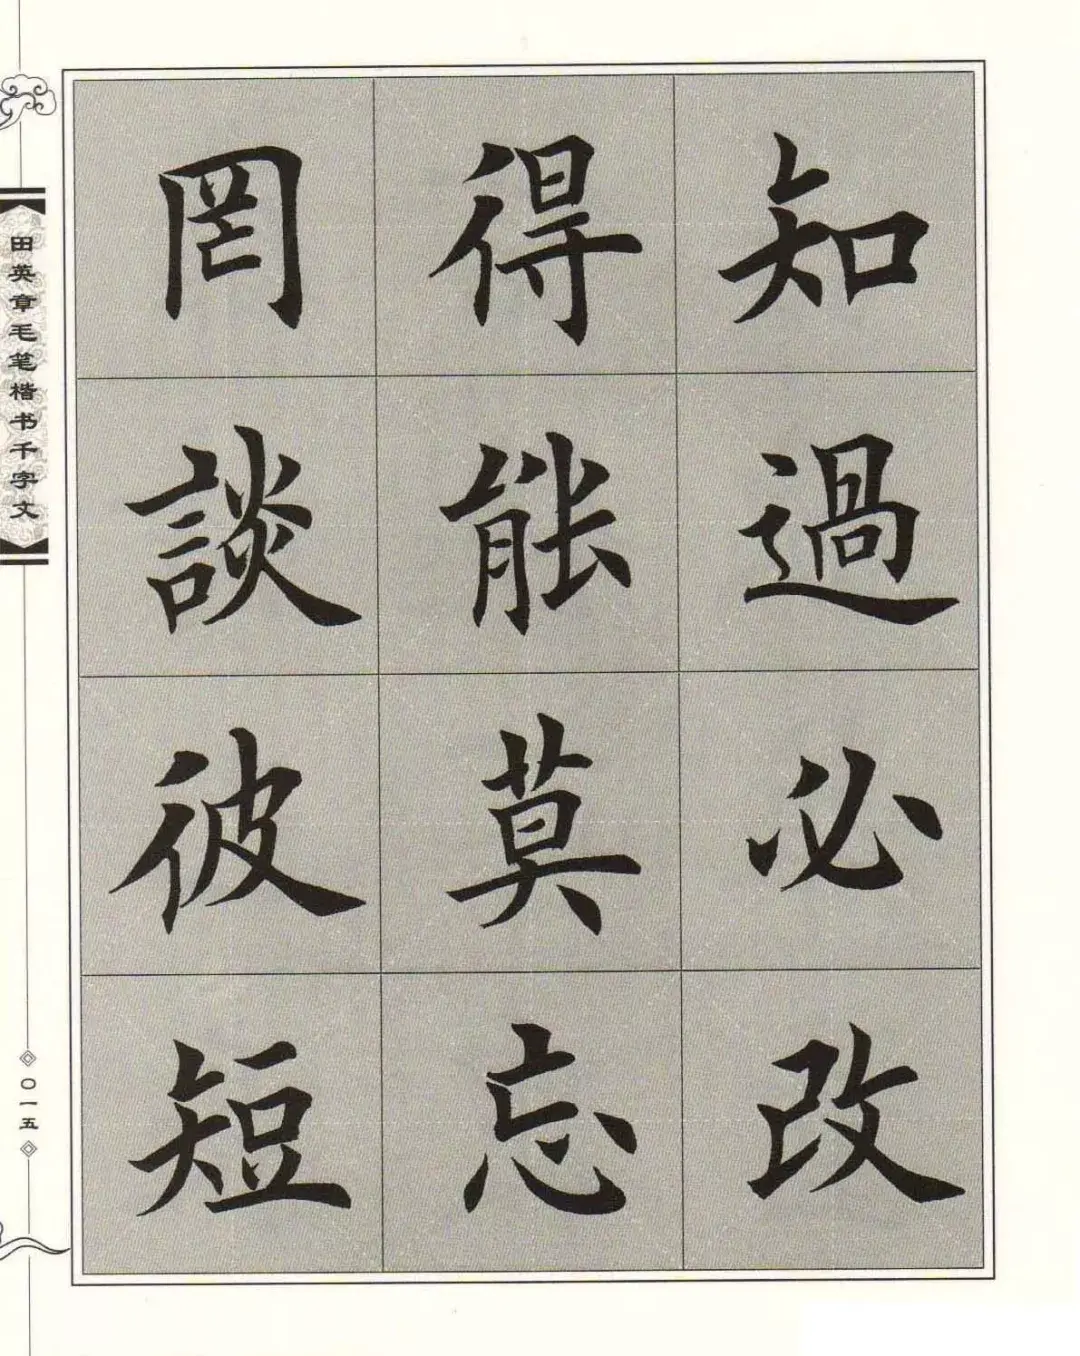 知過必改
得能莫忘
罔談彼短
田英章毛笔楷书千字文
〇一五